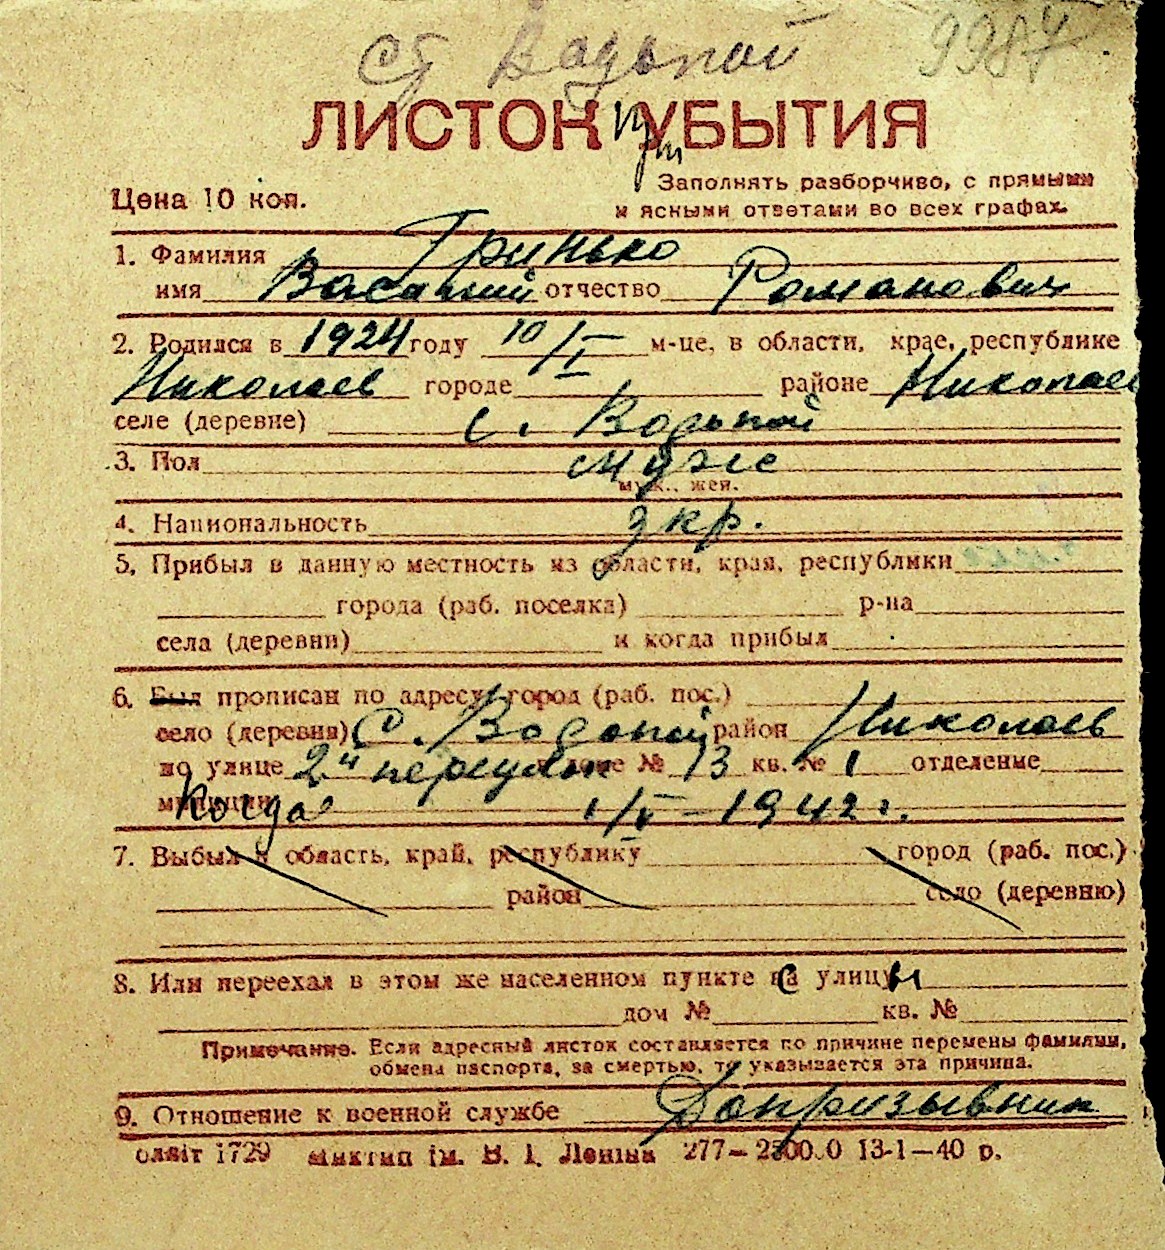 ст Водопой 9987
ЛИСТОК УБЫТИЯ
Цена 10 коп. Заполнять разборчиво, с прямыми
и ясными ответами во всех графах.
1. Фамилия Гринько
имя Василий отчество Романович
2. Родился в 1924 году 10/I м-це, в области, крае, республике
Николаев городе районе Николаев
селе (деревне) с. Водопой
3. Пол муж
муж., жен.
4. Национальность укр.
5. Прибыл в данную местность из области, края, республики
города (раб. поселка) р-на
села (деревни) и когда прибыл
6. Был прописан по адресу: город (раб. пос.)
село (деревня) с. Водопой район Николаев
по улице 2й переулок доме № 13 кв. № 1 отделение
милиции Когда 1/V-1942 г.
7. Выбыл в область, край, республику город (раб. пос.)
район село (деревню)
8. Или переехал в этом же населенном пункте с улицы
дом № кв. №
Примечание. Если адресный листок составляется по причине перемены фамилии,
обмена паспорта, за смертью, то указывается эта причина.
9. Отношение к военной службе Допризывник
олвіт 1729 ім. В. І. Леніна 277—25000 13-1—40 р.